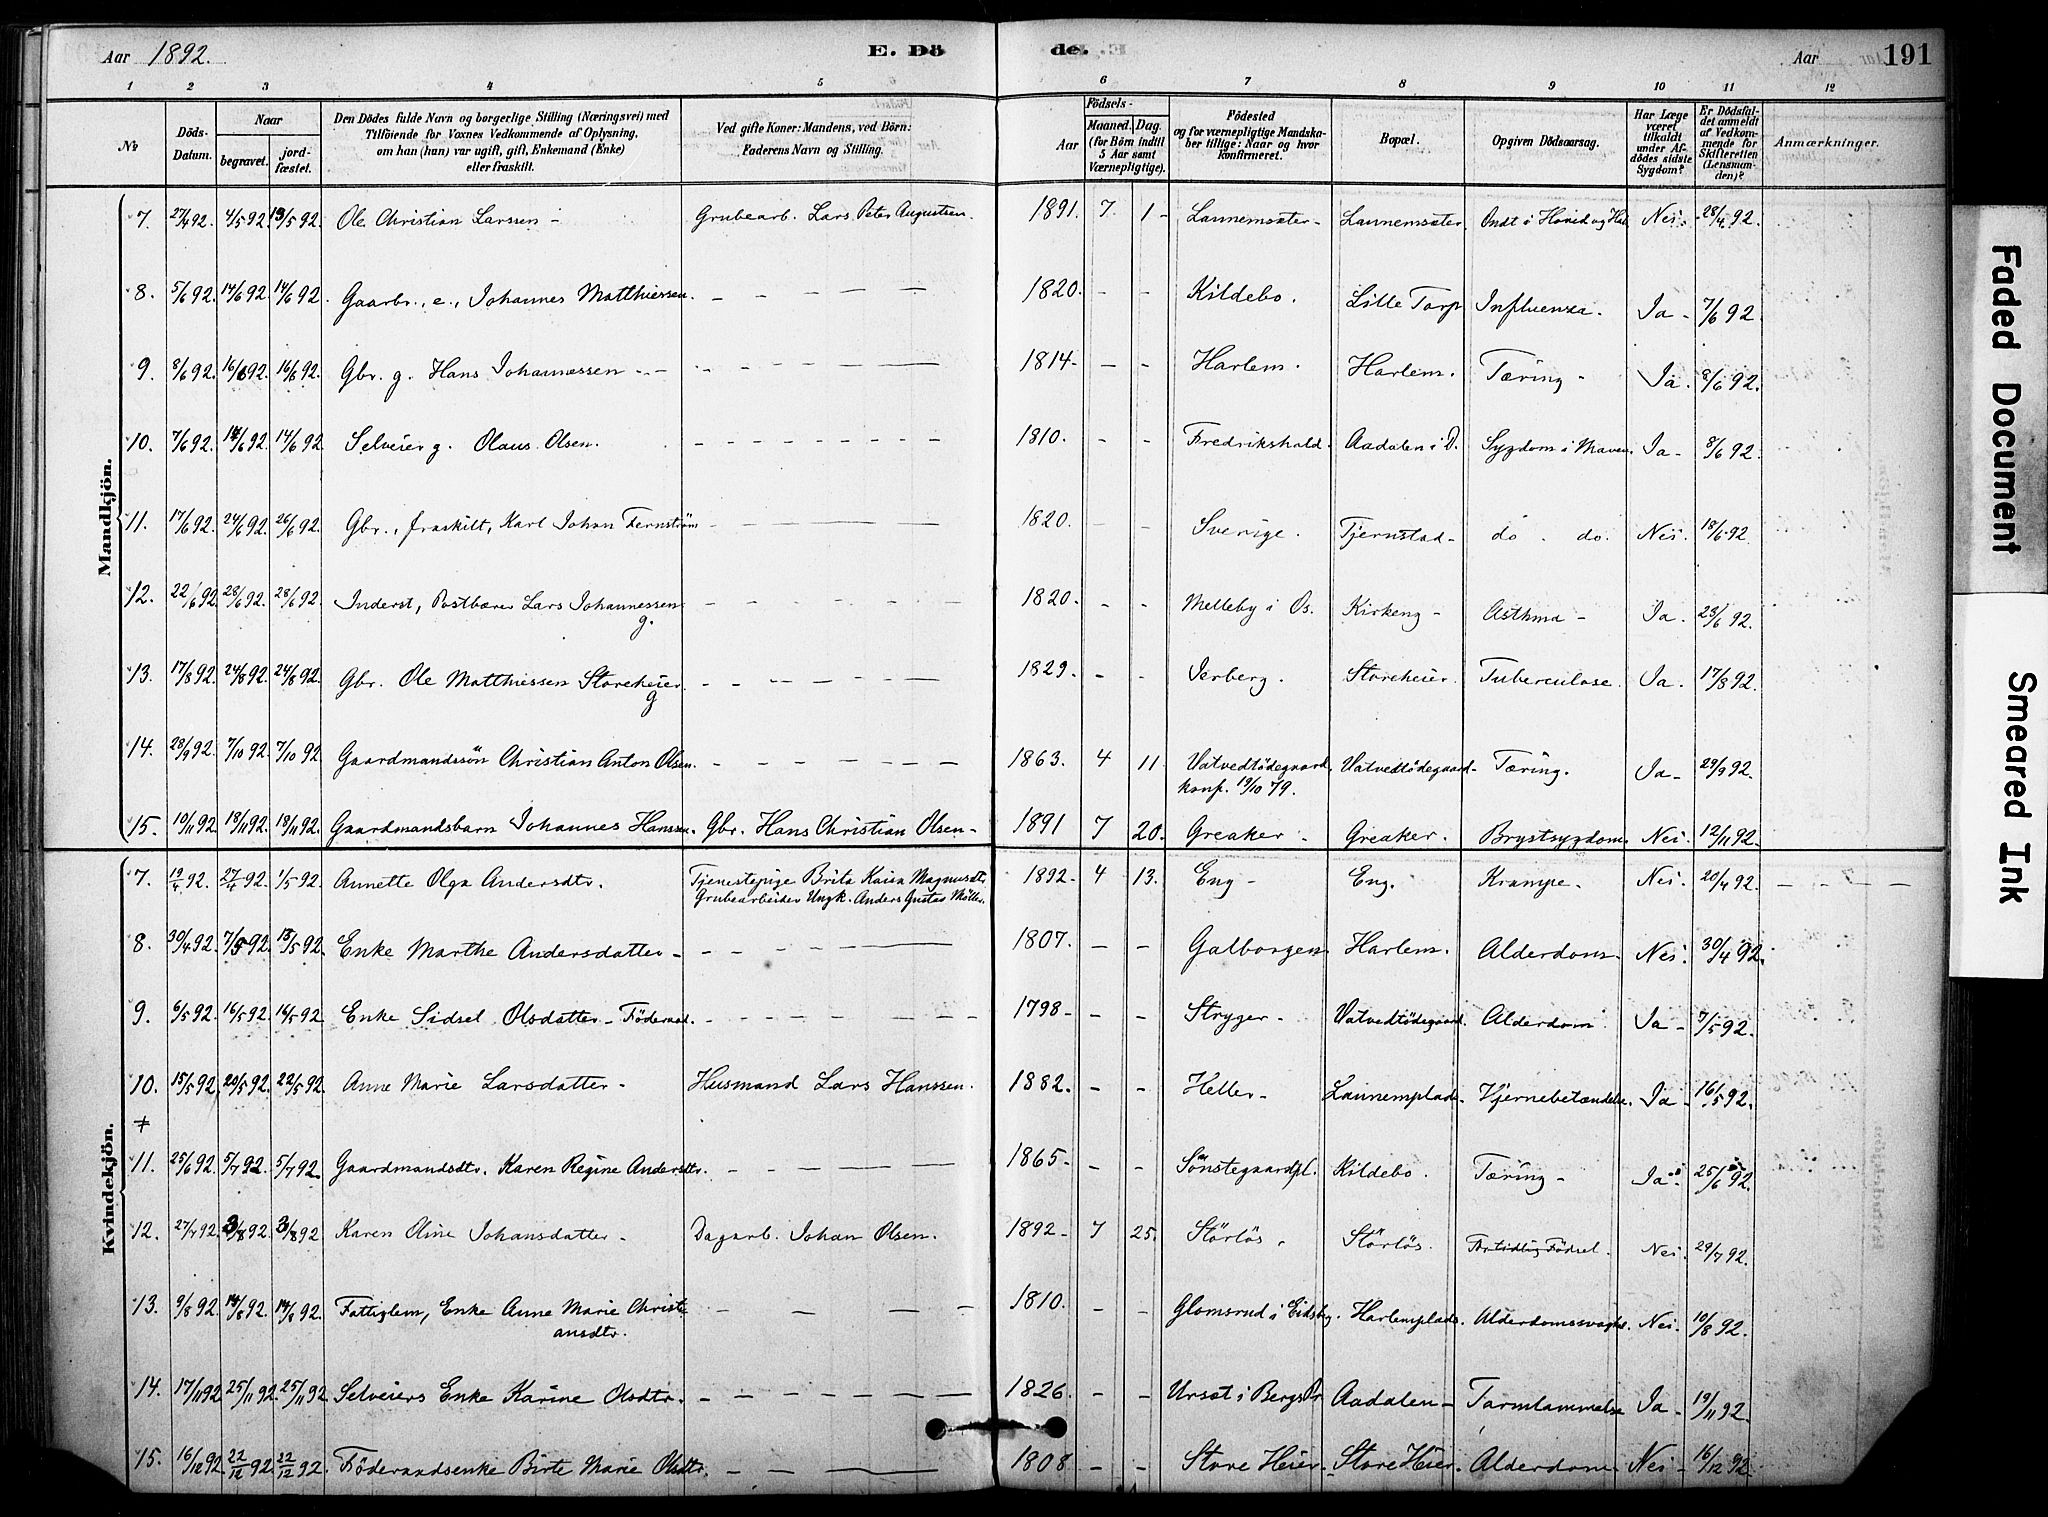 Aar 1892. E. Dö de. Aar 191
1 2 3 4 5 6 7 8 9 10 11 12
No
Döds-Datum.
Naar
begravet.
jord-fæstet.
Den Dödes fulde Navn og borgerlige Stilling (Næringsvei) med
Tilföiende for Voxnes Vedkommende af Oplysning,
om han (hun) var ugift, gift, Enkemand (Enke)
eller fraskilt.
Ved gifte Koner: Mandens, ved Börn:
Faderens Navn og Stilling.
Födsels-
Aar
Maaned. Dag.
(for Börn indtil
5 Aar samt
Værnepligtige).
Födested
og for værnepligtige Mandska-
ber tillige: Naar og hvor
konfirmeret.
Bopæl.
Opgiven Dödsaarsag.
Har Læge
været
tilkaldt
under Af-
dödes sidste
Sygdom?
Er Dödsfal-
det anmeldt
af Vedkom-
mende for
Skifteretten
(Lensman-
den)?
Anmærkninger.
Mandkjön.
7. 27/4 92. 4/5 92 13/5 92. Ole Christian Larssen - Grubearb. Lars Peter Augustsen. 1891. 7 1 - Launemsæter - Launemsæter. Ondt i Hoved og Hals Nei. 28/4 92.
8. 5/6 92. 14/6 92 14/6 92. Gaarbr., e., Johannes Matthiessen. - - - - 1820. - - Kildebo. Lille Torp Influenza. Ja - 7/6 92
9. 8/6 92. 16/6 92. 16/6 92. Gbr. g. Hans Johannessen - - - 1814 - - - Harlem. Harlem. Tæring - Ja. 8/6 92.
10. 7/6 92. 14/6 92 14/6 92 Selveier g. Olaus Olsen. - - - 1810. - - Fredrikshald. Aadalen i D. Sygdom i Maven. Ja - 8/6 92
11. 17/6 92. 24/6 92. 26/6 92. Gbr., fraskilt, Karl Johan Fernström - - - 1820. - - Sverige. Tjernstad - do. do. Nei. 18/6 92
12. 22/6 92. 28/6 92. 28/6 92. Inderst, Postbærer Lars Johannessen g. - - - 1820. - - Melleby i Os. Kirkeng - Asthma - Ja. 23/6 92.
13. 17/8 92. 24/8 92. 24/8 92. Gbr. Ole Matthiessen Storeheier g - - - 1829. - - Jerberg. Storeheier. Tuberculose. Ja. 17/8 92.
14. 28/9 92. 7/10 92. 7/10 92. Gaardmandssön Christian Anton Olsen. - - - 1863. 4 11. Vatvedtödegaard. Vatvedtödegaard - Tæring. Ja - 29/9 92.
konf. 19/10 79.
15. 10/11 92. 18/11 92. 18/11 92. Gaardmandsbarn Johannes Hanssen. Gbr. Hans Christian Olsen - 1891 7 20. Greaker. Greaker. Brystsygdom. Nei. 12/11 92.
Kvindekjön.
7. 19/4 92. 27/4 92. 1/5 92. Annette Olga Andersdtr. Tjenestepige Brita Kaisa Magnusdtr. 1892 - 4 13. Eng - Eng. Krampe. Nei. 20/4 92. - - - -
Grubearbeider Ungk. Anders Gustav Möller.
8. 30/4 92. 7/5 92 15/5 92. Enke Marthe Andersdatter - - - 1807. - - Galborgen. Harlem. Alderdom. Nei. 30/4 92.
9. 6/5 92. 16/5 92. 16/5 92 Enke Sidsel Olsdatter - Föderaad. - - - 1798 - - - Stryger - Vatvedtödegaard. Alderdom. Ja - 7/5 92.
10. 15/5 92 20/5 92. 22/5 92. Anne Marie Larsdatter - Husmand Lars Hanssen. 1882. - - Heller - Launemplads - Hjernebetændelse. Ja - 16/5 92.
11. 25/6 92. 5/7 92. 5/7 92. Gaardmandsdtr. Karen Regine Andersdtr. - - - 1865 - - - Sönstegaardpl. Kildebo. Tæring - Ja. 25/6 92.
12. 27/7 92. 3/8 92 3/8 92 Karen Oline Johansdatter - Dagarb. Johan Olsen. 1892 - 7 25. Störlös. Störlös. Fortidlig Födsel. Nei. 29/7 92.
13. 9/8 92. 14/8 92. 14/8 92. Fattiglem, Enke Anne Marie Christi - - - 1810. - - Glomsrud i Eidsbg. Harlemplads. Alderdomssvaghed. Nei. 10/8 92.
ansdtr.
14. 17/11 92 25/11 92. 25/11 92. Selveiers Enke Karine Olsdtr. - - - 1826. - - Ursæt i Bergs Pr Aadalen - Tarmlammelse Ja - 19/11 92.
15. 16/12 92 22/12 92. 22/12 92. Föderaadsenke Birte Marie Olsdtr. - - - 1808 - - Store Heier. Store Heier. Alderdom. Nei - 16/12 92.
Faded Document
Smeared Ink